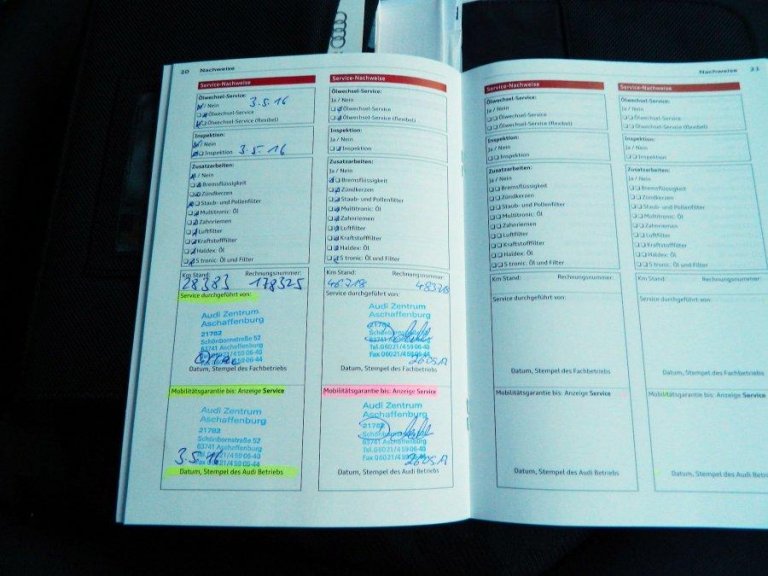 20 Nachweise
Service-Nachweise
Ölwechsel-Service:
Ja / Nein 3.5.16
Ölwechsel-Service
Ölwechsel-Service (flexibel)
Inspektion:
Ja / Nein
Inspektion 3.5.16
Zusatzarbeiten:
Ja / Nein
Bremsflüssigkeit
Zündkerzen
Staub- und Pollenfilter
Multitronic: Öl
Zahnriemen
Luftfilter
Kraftstofffilter
Haldex: Öl
S tronic: Öl und Filter
Km Stand: Rechnungsnummer:
28383 178325
Service durchgeführt von:
Audi Zentrum
Aschaffenburg
21762
Schönbornstraße 52
63741 Aschaffenburg
Tel. 06021/4 59 06-40
Fax 06021/4 59 06-44
Datum, Stempel des Fachbetriebs
Mobilitätsgarantie bis: Anzeige Service
Audi Zentrum
Aschaffenburg
21762
Schönbornstraße 52
63741 Aschaffenburg
Tel. 06021/4 59 06-40
Fax 06021/4 59 06-44
3.5.16
Datum, Stempel des Audi Betriebs
Service-Nachweise
Ölwechsel-Service:
Ja / Nein
Ölwechsel-Service
Ölwechsel-Service (flexibel)
Inspektion:
Ja / Nein
Inspektion
Zusatzarbeiten:
Ja / Nein
Bremsflüssigkeit
Zündkerzen
Staub- und Pollenfilter
Multitronic: Öl
Zahnriemen
Luftfilter
Kraftstofffilter
Haldex: Öl
S tronic: Öl und Filter
Km Stand: Rechnungsnummer:
46718
Service durchgeführt von:
Audi Zentrum
Aschaffenburg
21762
Schönbornstraße
63741 Aschaffenburg
Tel. 06021/4 59 06-40
Fax 06021/4 59 06-44
Datum, Stempel des Fachbetriebs
Mobilitätsgarantie bis: Anzeige Service
Audi Zentrum
Aschaffenburg
21762
Schönbornstraße
63741 Aschaffenburg
Tel. 06021/4 59 06-40
Fax 06021/4 59 06-44
Datum, Stempel des Audi Betriebs
Nachweise 21
Service-Nachweise
Ölwechsel-Service:
Ja / Nein
Ölwechsel-Service
Ölwechsel-Service (flexibel)
Inspektion:
Ja / Nein
Inspektion
Zusatzarbeiten:
Ja / Nein
Bremsflüssigkeit
Zündkerzen
Staub- und Pollenfilter
Multitronic: Öl
Zahnriemen
Luftfilter
Kraftstofffilter
Haldex: Öl
S tronic: Öl und Filter
Km Stand: Rechnungsnummer:
Service durchgeführt von:
Datum, Stempel des Fachbetriebs
Mobilitätsgarantie bis: Anzeige Service
Datum, Stempel des Audi Betriebs
Service-Nachweise
Ölwechsel-Service:
Ja / Nein
Ölwechsel-Service
Ölwechsel-Service (flexibel)
Inspektion:
Ja / Nein
Inspektion
Zusatzarbeiten:
Ja / Nein
Bremsflüssigkeit
Zündkerzen
Staub- und Pollenfilter
Multitronic: Öl
Zahnriemen
Luftfilter
Kraftstofffilter
Haldex: Öl
S tronic: Öl und Filter
Km Stand: Rechnungsnummer:
Service durchgeführt von:
Datum, Stempel des Fachbetriebs
Mobilitätsgarantie bis: Anzeige Service
Datum, Stempel des Audi Betriebs